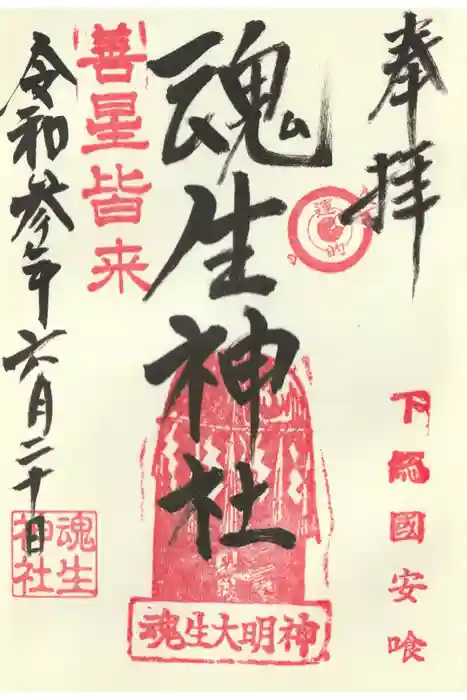 奉拝
下総國安喰
魂生神社
魂生大明神
善星皆来
令和参年六月二十日
魂生
神社